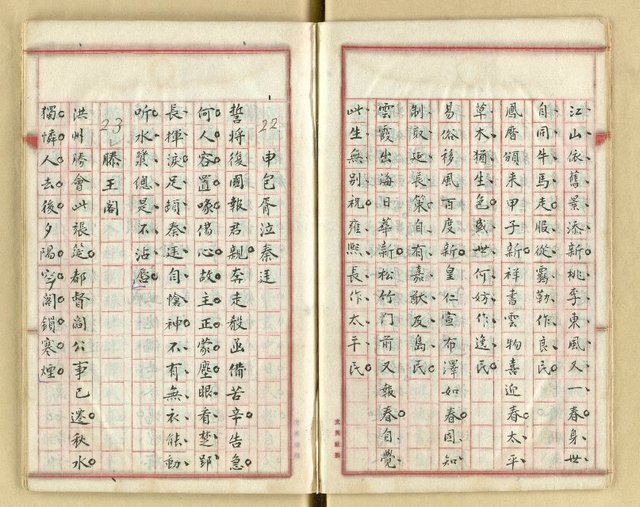 江山依舊景添新桃李東風又一春身世
自同牛馬走服從霧勒作良民
鳳曆頒来甲子新祥書雲物喜迎春太平
草木猶生色盛世何妨作逸民
易俗移風百度新皇仁宣布澤如春固知
制取延長策自有嘉猷及島民
雲霞出海日華新松竹門前又報春自覺
此生無別祝雍熙長作太平民
22 申包胥泣秦廷
誓將復國報君親奔走殽函備苦辛告急
何人容置喙傷心故主正蒙塵眼看楚郢
長揮淚足頓秦廷自愴神不有無衣能動
听水漿總是不沾唇
23 滕王閣
洪州勝會此張筵都督閻公事已遷秋水
獨憐人去後夕陽空閣鎖寒煙